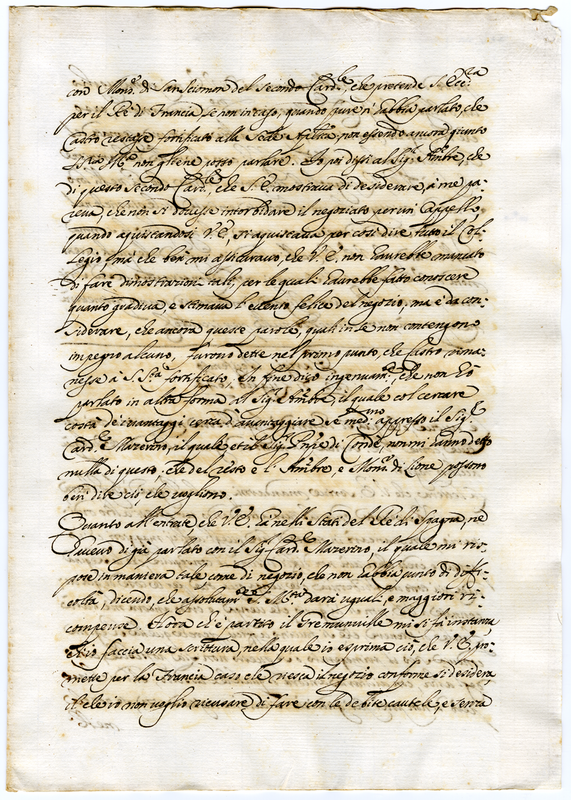 con Mons.r di San Sciomon del secondo Card.le, che pretende S. Ecc.za
per il Rè di Francia, se non in caso, quando pure n'habbia parlato, che
Castro restasse fortificato alla Sede Ap.lica, non essendo ancora giunto
M.tà non gliene posso parlare. Io poi dissi al Sig.r Amb.re, che
di questo secondo Card.le, che S. E. mostrava di desiderare, a me pa-
reva che non si dovesse intorbidare il negoziato per un Cappello,
quando aquistandosi V. E., si aquistava per così dire tutto il Col-
legio, mà che ben mi assicuravo, che V. E. non havrebbe mancato
di fare dimostrazioni tali, per le quali havrebbe fatto conoscere
quanto gradiva, e stimava l'evento felice del negozio, ma è da con-
siderare, che ancora queste parole, quali in se non contengono
impegno alcuno, furono dette nel primo punto, che Castro rima-
nesse à S. S.tà fortificato. In fine dico ingenuam.te, che non hò
parlato in altra forma al Sig.r Amb.re, il quale col cercare
costà de vantaggi cerca d'avvantaggiare se med.mo appresso il Sig.r
Card.le Mazerino, il quale et il Sig.r Pn̄pe di Condè non mi hanno detto
nulla di questo, che del resto e l'Amb.re, e Mons.r di Lione possono
ben dire ciò, che vogliono.
Quanto all'entrate, che V. E. hà nelli Stati del Rè di Spagna, ne
havevo di già parlato con il Sig.r Card.le Mazerino, il quale mi ris-
pose in maniera tale come di negozio, che non habbia punto di diffi-
coltà, dicendo, che M.tà darà uguali, e maggiori ri-
compense. Hora che è partito il Gremonville mi si fà instanza,
ch'io faccia una scrittura, nella quale io esprima ciò, che V. E. pro-
mette per la Francia caso che riesca il negozio conforme si desidera,
il che io non voglio ricusare di fare con le debite cautele, e senza